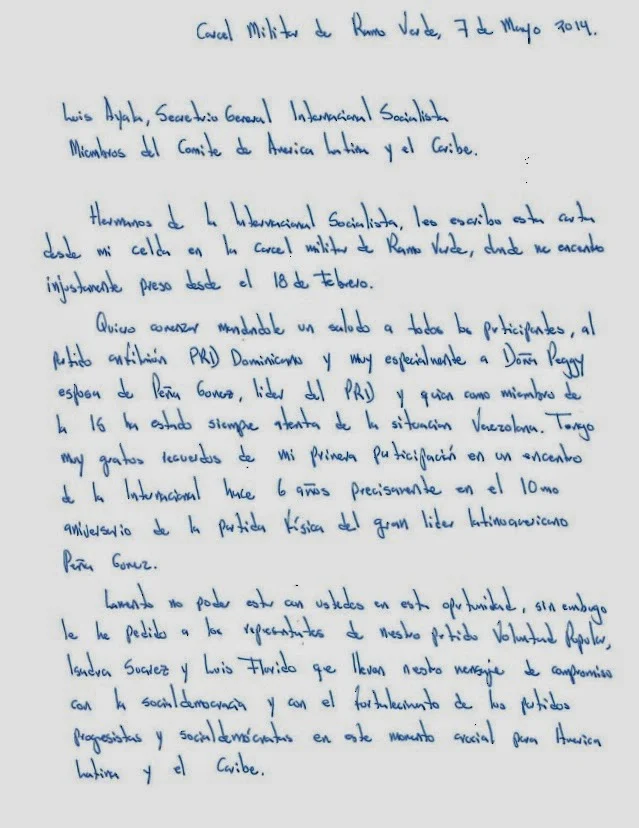 Carcel Militar de Ramo Verde, 7 de Mayo 2014.
Luis Ayala, Secretrio General Internacional Socialista
Miembros del Comite de America Latina y el Caribe.
Hermanos de la Internacional Socialista, les escribo esta carta
desde mi celda en la carcel militar de Ramo Verde, donde me encuentro
injustamente preso desde el 18 de Febrero.
Quiero comenzar mandandole un saludo a todos los participantes, al
partido anfitrión PRD Dominicano y muy especialmente a Doña Peggy
esposa de Peña Gomez, lider del PRD y quien como miembro de
la IS ha estado siempre atenta de la situacion Venezolana. Tengo
muy gratos recuerdos de mi primera participación en un encuentro
de la Internacional hace 6 años precisamente en el 10mo
aniversario de la partida física del gran lider latinoamericano
Peña Gomez.
Lamento no poder estar con ustedes en esta oportunidad, sin embargo
le he pedido a los representantes de nuestro partido Voluntad Popular,
Isadora Suarez y Luis Florido que llevan nuestro mensaje de compromiso
con la socialdemocracia y con el fortalecimiento de los partidos
progresistas y socialdemócratas en este momento crucial para America
Latina y el Caribe.